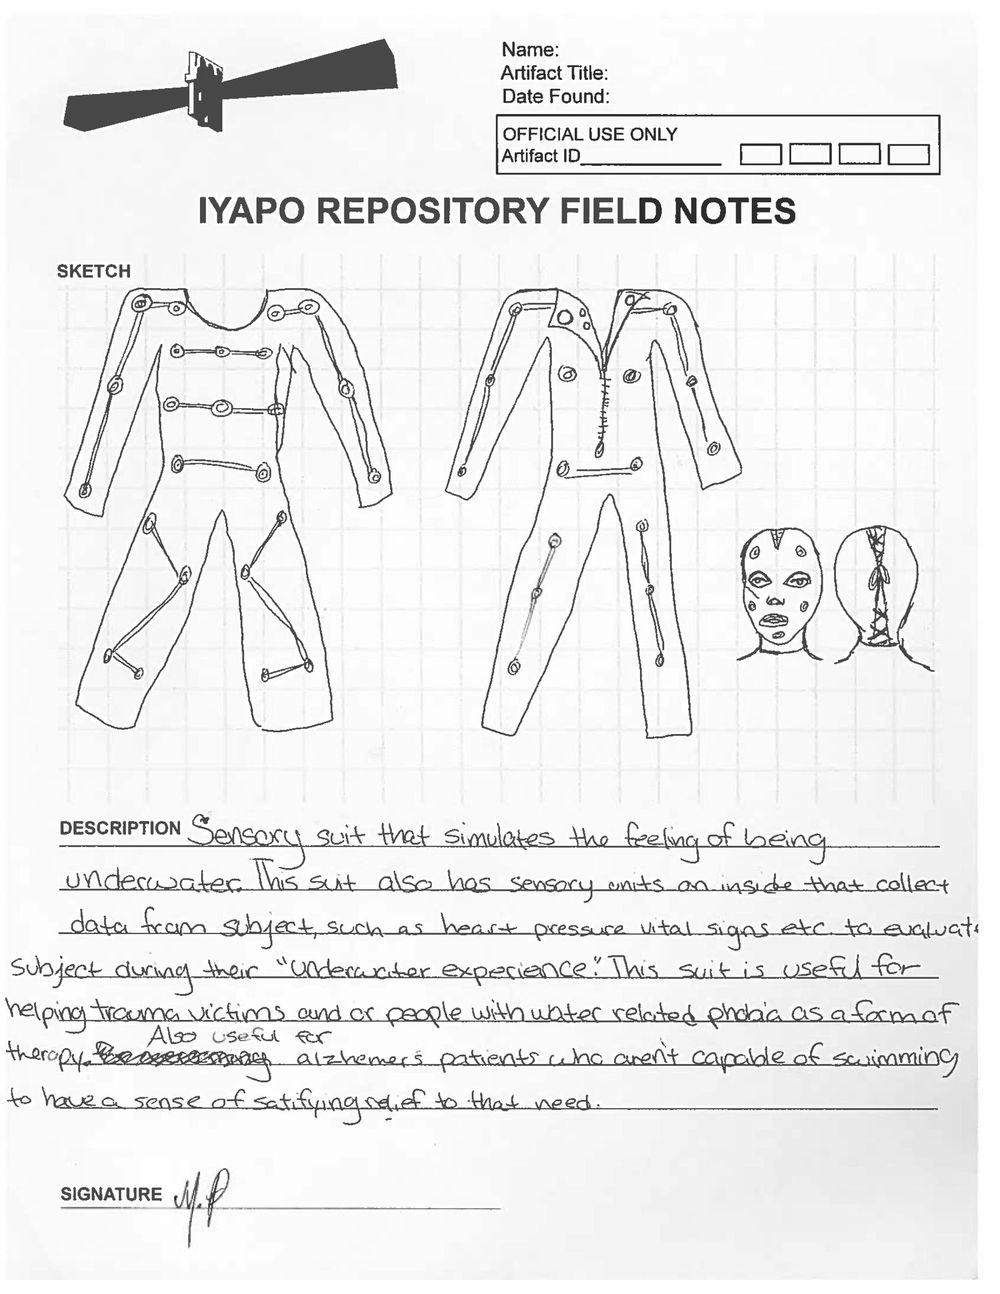 Name:
Artifact Title:
Date Found:
OFFICIAL USE ONLY
Artifact ID
IYAPO REPOSITORY FIELD NOTES
SKETCH
DESCRIPTION Sensory suit that simulates the feeling of being
underwater. This suit also has sensory units on inside that collect
data from subject, such as heart pressure vital signs etc. to evaluate
subject during their "underwater experience." This suit is useful for
helping trauma victims and or people with water related phobia as a form of
Also useful for
therapy. alzhemers patients who aren't capable of swimming
to have a sense of satifying relief to that need.
SIGNATURE M.P